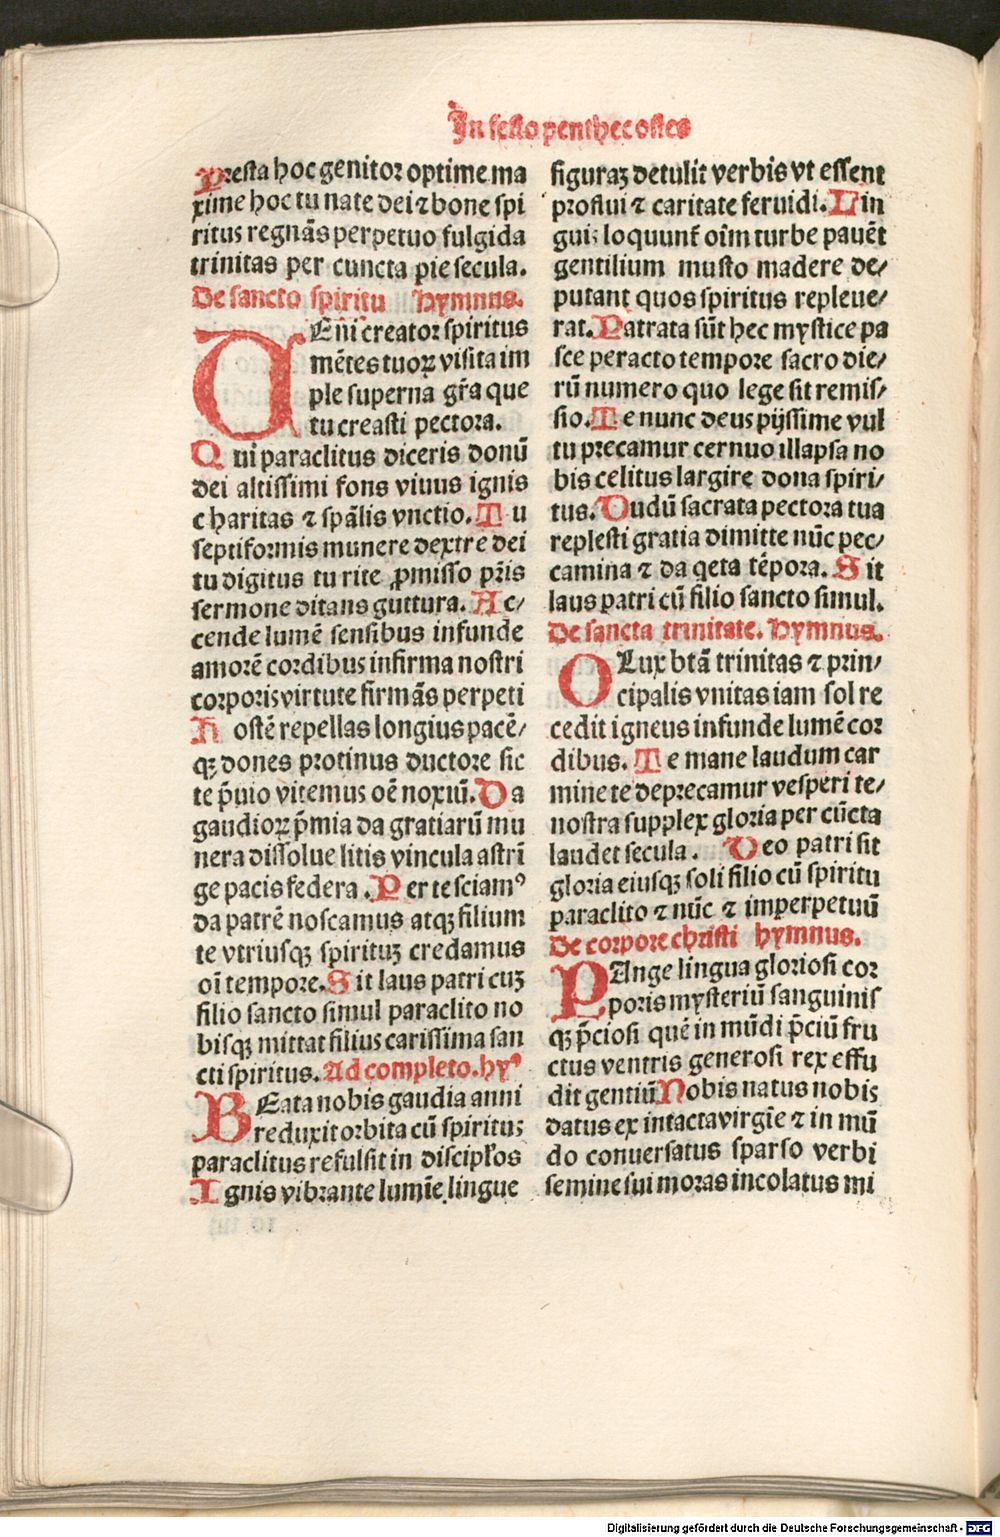 In festo penthecostes
Presta hoc genitor optime ma
xime hoc tu nate dei ⁊ bone spi
ritus regnãs perpetuo fulgida
trinitas per cuncta pie secula.
De sancto spiritu Hymnus.
UEñi creator spiritus
mẽtes tuoꝝ visita im
ple superna gr̃a que
tu creasti pectora.
Qui paraclitus diceris donũ
dei altissimi fons viuus ignis
charitas ⁊ spãlis vnctio. Tu
septiformis munere dextre dei
tu digitus tu rite ꝓmisso pr̃is
sermone ditans guttura. Ac/
cende lumẽ sensibus infunde
amorẽ cordibus infirma nostri
corporis virtute firmãs perpeti
Hostẽ repellas longius pacẽ/
qꝫ dones protinus ductore sic
te p̃uio vitemus oẽ noxiũ. Da
gaudioꝝ p̃mia da gratiarũ mu
nera dissolue litis vincula astrĩ
ge pacis federa. Per te sciamꝰ
da patrẽ noscamus atqꝫ filium
te vtriusqꝫ spirituꝫ credamus
oĩ tempore. Sit laus patri cuꝫ
filio sancto simul paraclito no
bisqꝫ mittat filius carissima san
cti spiritus. Ad completo. hyꝰ
BEata nobis gaudia anni
reduxit orbita cũ spiritus
paraclitus refulsit in discipl̃os
Ignis vibrante lumĩe lingue
figuraꝫ detulit verbis vt essent
proflui ⁊ caritate feruidi. Lin
guis loquunt̃ oĩm turbe pauẽt
gentilium musto madere de/
putant quos spiritus repleue/
rat. Patrata sũt hec mystice pa
sce peracto tempore sacro die/
rũ numero quo lege fit remis/
sio. Te nunc deus pijssime vul
tu precamur cernuo illapsa no
bis celitus largire dona spiri/
tus. Dudũ sacrata pectora tua
replesti gratia dimitte nũc pec/
camina ⁊ da qeta tẽpora. Sit
laus patri cũ filio sancto simul.
De sancta trinitate. Hymnus.
O Lux btã trinitas ⁊ prin/
cipalis vnitas iam sol re
cedit igneus infunde lumẽ cor
dibus. Te mane laudum car
mine te deprecamur vesperi te/
nostra supplex gloria per cũcta
laudet secula. Deo patri sit
gloria eiusqꝫ soli filio cũ spiritu
paraclito ⁊ nũc ⁊ imperpetuũ
De corpore christi hymnus.
PAnge lingua gloriosi cor
poris mysteriũ sanguinis
qꝫ p̃ciosi quẽ in mũdi p̃ciũ fru
ctus ventris generosi rex effu
dit gentiũ Nobis natus nobis
datus ex intacta virgĩe ⁊ in mũ
do conuersatus sparso verbi
semine sui moras incolatus mi
Digitalisierung gefördert durch die Deutsche Forschungsgemeinschaft - DFG